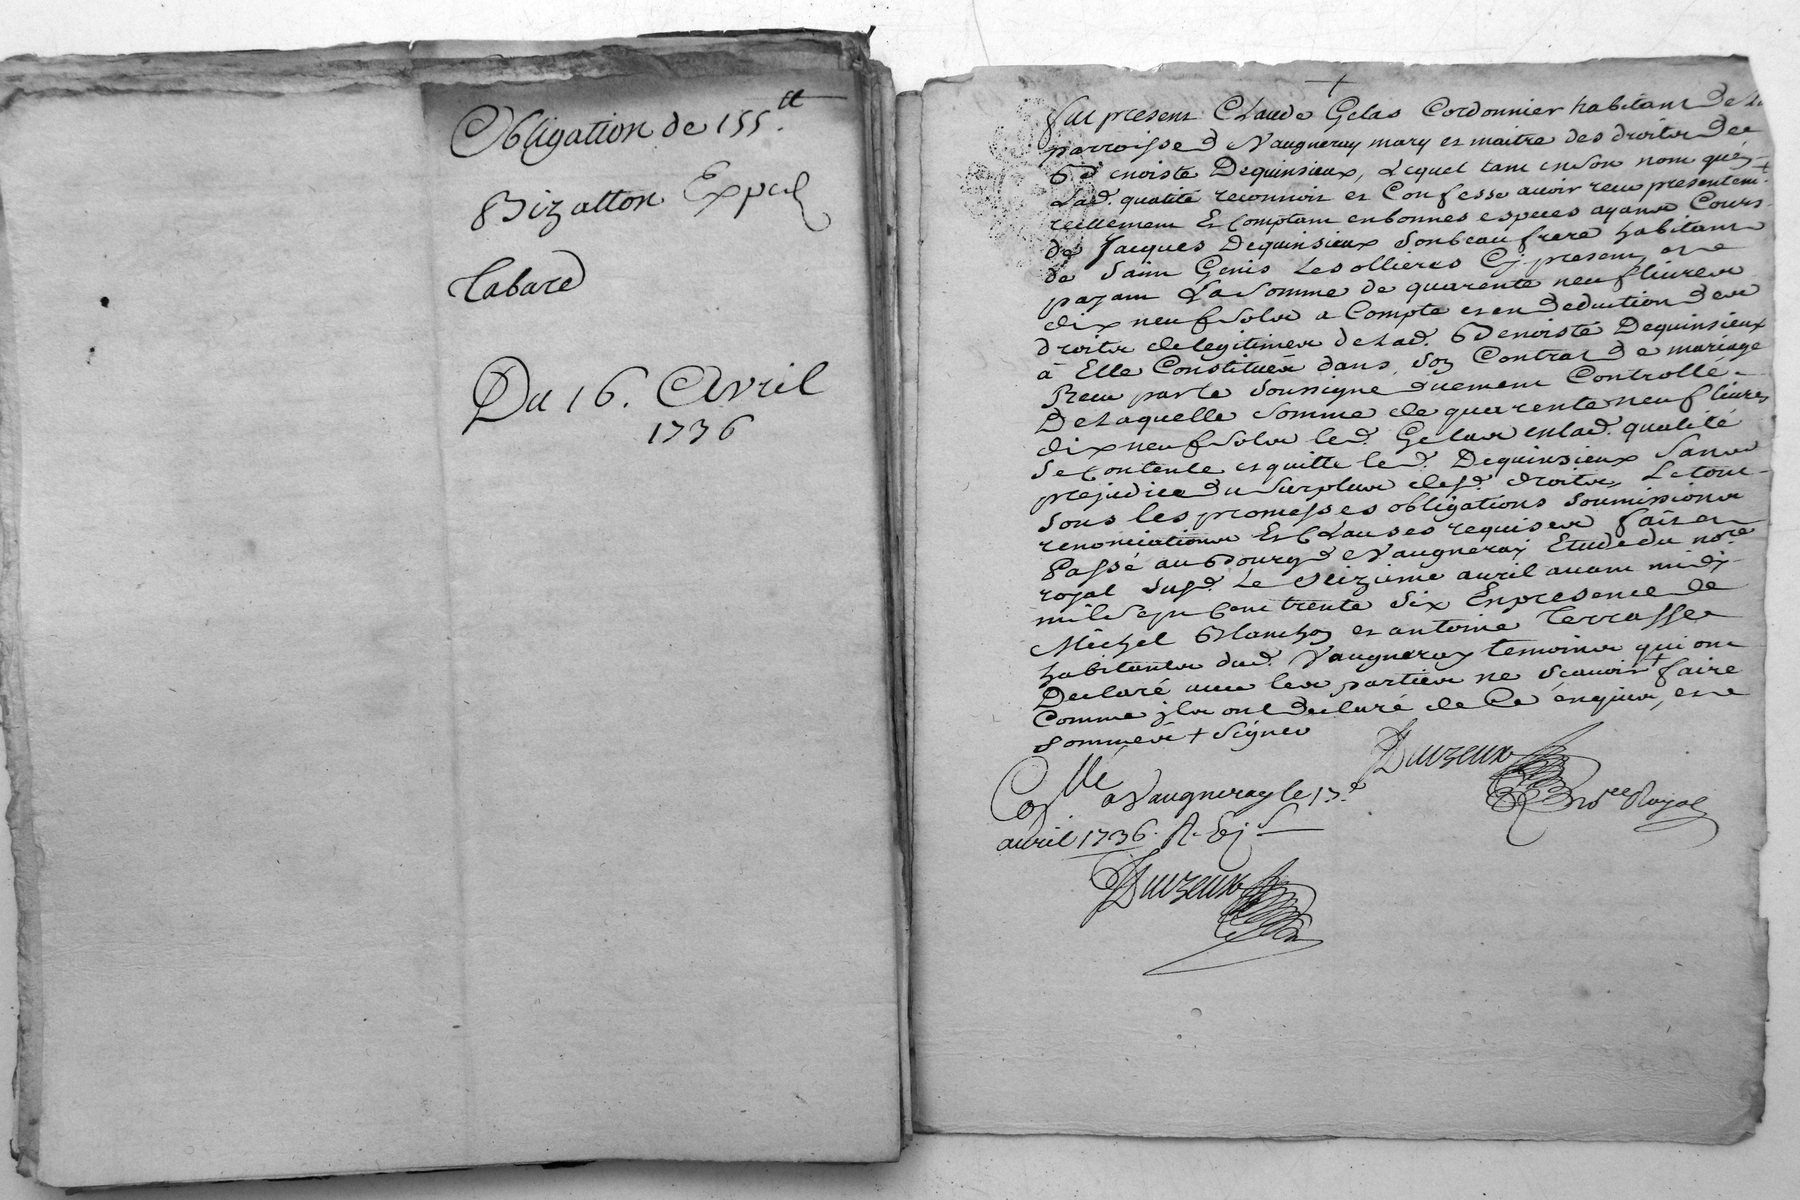 Obligation de 155.tt
Bizatton Exped
Tabard
Du 16. Avril
1736
+
Fut present Claude Gelas Cordonnier habitant de la
parroisse de Vaugneray mary et maitre des droits de
Benoiste Dequinsieux, Lequel tant en son nom qu'en
Lad. qualité reconnoit et Confesse avoir receu presentem.t
reellement Et Comptant en bonnes especes ayant Cours
de Jacques Dequinsieux Son beau frere habitant
de Saint Genis Les ollieres Cy present, et
payant La Somme de quarente neuf livres
dix neuf Sols a Compte et en deduction des
droits de legitimes de Lad. Benoiste Dequinsieux
à Elle Constitués dans Son Contrat de mariage
Receu par le Soussigné duement Controllé.
De Laquelle Somme de quarente neuf livres
dix neuf Sols led. Gelas en lad. qualité
Se Contente et quitte led. Dequinsieux Sans
prejudice du Surplus desd. droits, Le tout
Sous les promesses obligations Soumissions
renonciations Et Clauses requises fait et
Passé au Bourg de Vaugneray Etude du no.re
royal Susd. Le Seizieme avril avant midy
mil Sept Cent trente Six En presence de
Michel Blanchon et antoine Terrasse
habitants dud. Vaugneray temoins qui ont
Declaré avec les parties ne Sçavoir + faire
Comme ils ont declaré de Ce enquis, et
Sommés + Signer
Duvzeux
No.re Royal
Con.lle a Vaugneray le 17.e
avril 1736. R.
Duvzeux